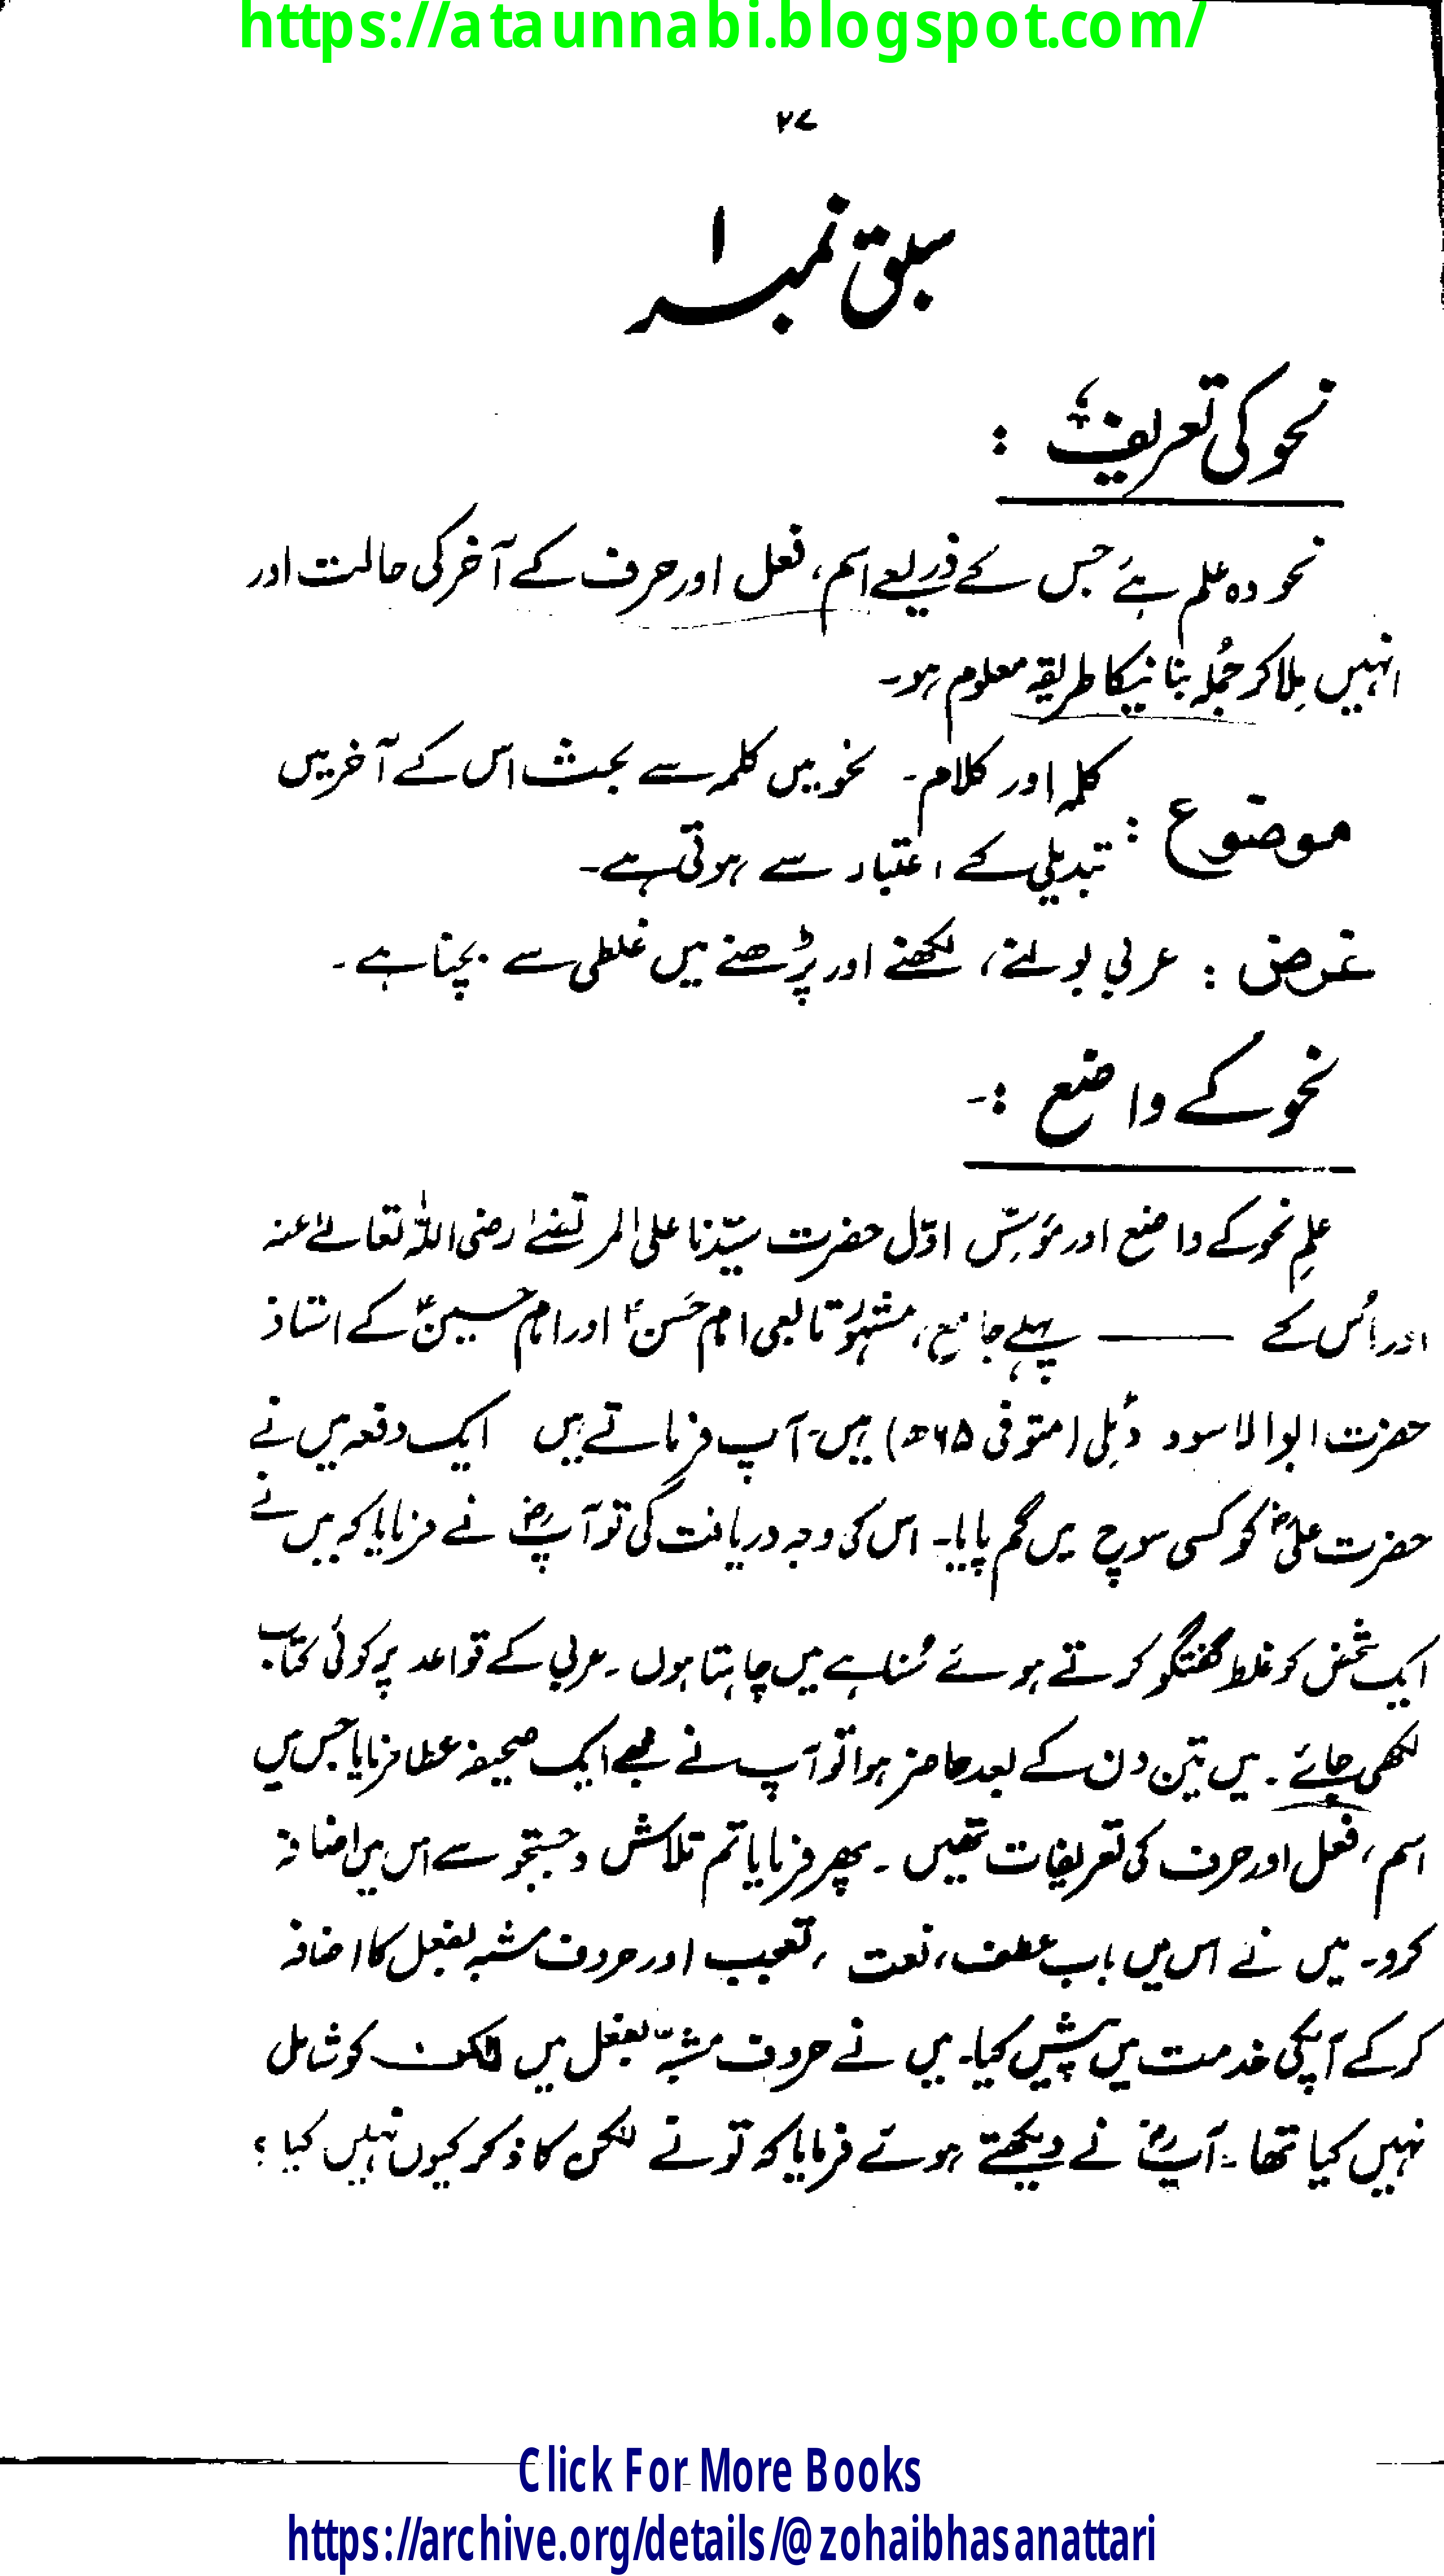 https://ataunnabi.blogspot.com/
۲۷
سبق نمبر ۱
نحو کی تعریف :
نحو وہ علم ہے جس کے ذریعے اسم، فعل اور حرف کے آخر کی حالت اور
انہیں مِلا کر جُملہ بنانیکا طریقہ معلوم ہو۔
موضوع : کلمہ اور کلام۔ نحو میں کلمہ سے بحث اس کے آخر میں
تبدیلی کے اعتبار سے ہوتی ہے۔
غرض : عربی بولنے، لکھنے اور پڑھنے میں غلطی سے بچنا ہے۔
نحو کے واضع :-
علمِ نحو کے واضع اور مؤسّس اوّل حضرت سیّدنا علی المرتضےٰ رضی اللّٰہ تعالےٰ عنہ
اور اُس کے —— پہلے جامع، مشہور تابعی امام حَسن ؓ اور امام حسین ؓ کے استاذ
حضرت ابوالاسود دُئِلی (متوفی ۶۵ھ) ہیں۔ آپ فرماتے ہیں ایک دفعہ میں نے
حضرت علی ؓ کو کسی سوچ میں گم پایا۔ اس کی وجہ دریافت کی تو آپ ؓ نے فرمایا کہ میں نے
ایک شخص کو غلط گفتگو کرتے ہوئے سُنا ہے میں چاہتا ہوں۔ عربی کے قواعد پر کوئی کتاب
لکھی جائے۔ میں تین دن کے بعد حاضر ہوا تو آپ نے مجھے ایک صحیفہ عطا فرمایا جس میں
اسم، فعل اور حرف کی تعریفات تھیں۔ پھر فرمایا تم تلاش و جستجو سے اس میں اضافہ
کرو۔ میں نے اس میں باب عطف، نعت، تعجب اور حروف مشبہ بفعل کا اضافہ
کر کے آپکی خدمت میں پیش کیا۔ میں نے حروف مشبّہ بفعل میں لٰکن کو شامل
نہیں کیا تھا۔ آپ ؓ نے دیکھتے ہوئے فرمایا کہ تو نے لٰکن کا ذکر کیوں نہیں کیا ؟
Click For More Books
https://archive.org/details/@zohaibhasanattari